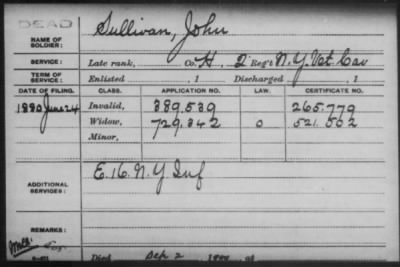 DEAD
NAME OF SOLDIER: Sullivan, John
SERVICE: Late rank, Co. H, 2 Reg't N.Y. Vet. Cav
TERM OF SERVICE: Enlisted , 1 Discharged , 1
DATE OF FILING. CLASS. APPLICATION NO. LAW. CERTIFICATE NO.
1880 June 24 Invalid, 389,539 265.779
Widow, 729,342 0 521.502
Minor,
ADDITIONAL SERVICES: E. 16. N.Y. Inf
REMARKS:
Died Sep 2